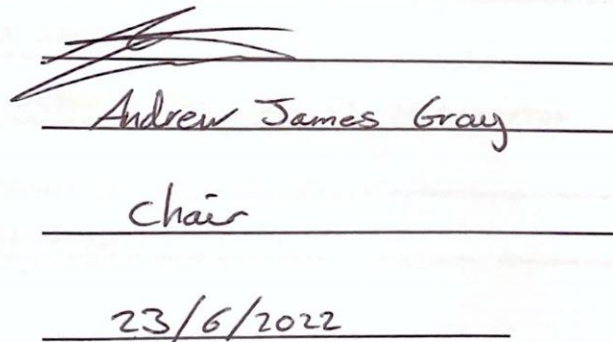 Andrew James Gray
Chair
23/6/2022